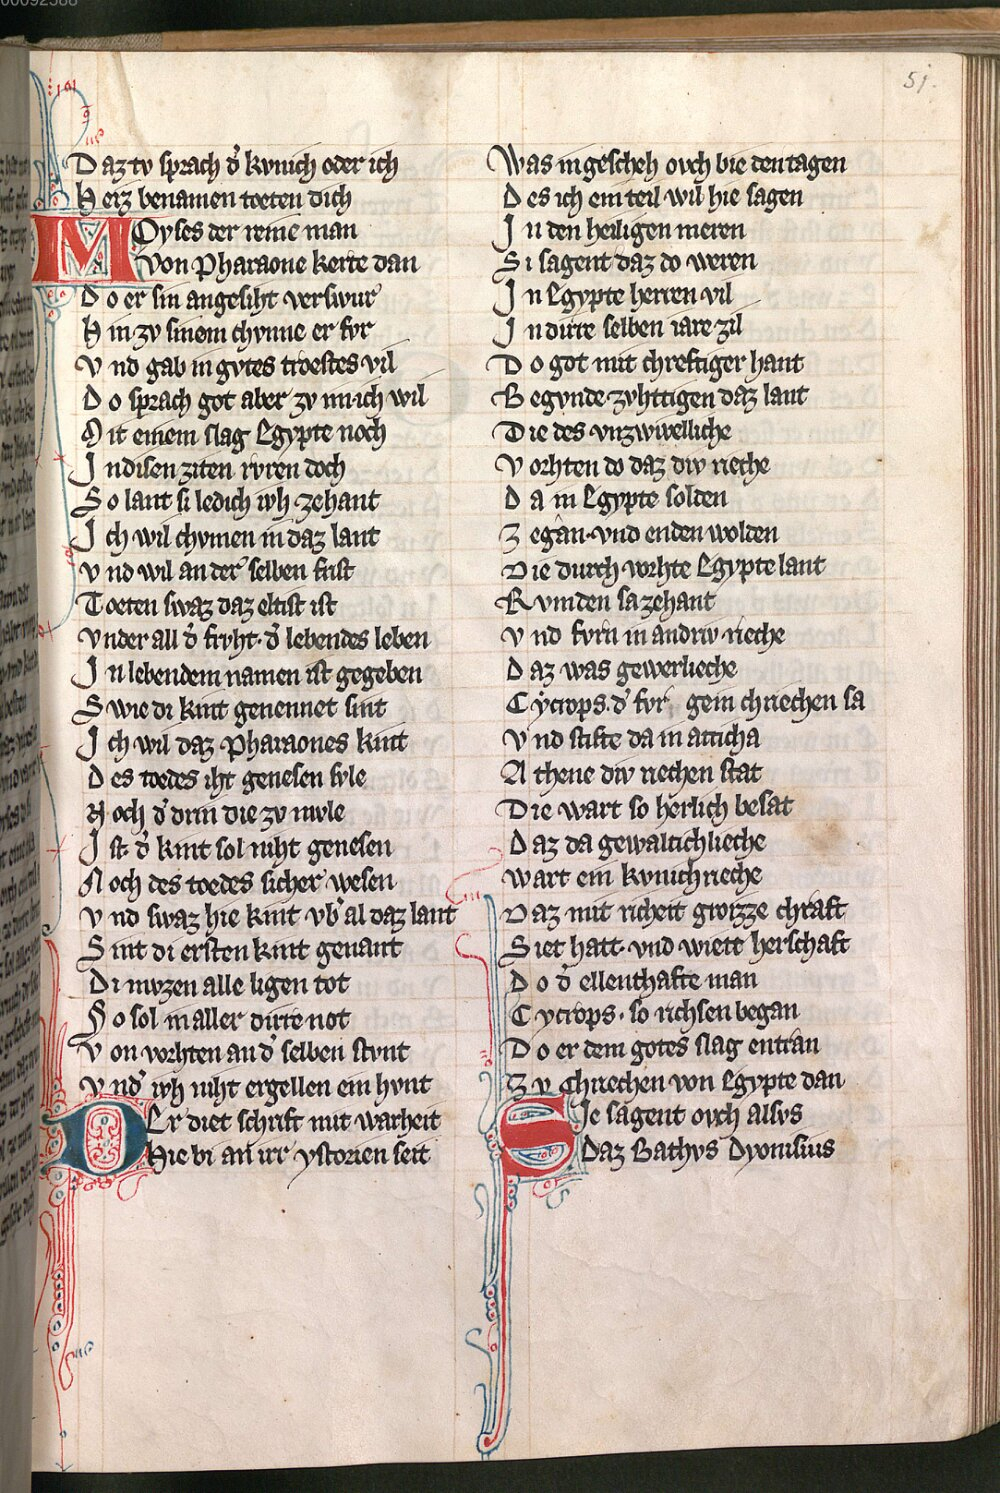 00092588
51.
Daz tv sprach d̾ kvnich oder ich
Herz benamen toeten dich
Moyses der reine man
Von Pharaone kerte dan
Do er sin angesiht verswur
Hin zv sinem chvnne er fvr
Vnd gab in gvtes troestes vil
Do sprach got aber zv im ich wil
Mit einem slag Egypte noch
In disen ziten rvren doch
So lant si ledich ivh zehant
Ich wil chvmen in daz lant
Vnd wil an der selben frist
Toeten swaz daz eltist ist
Vnder all d̾ frvht · d̾ lebendes leben
In lebendem namen ist gegeben
Swie di kint genennet sint
Ich wil daz Pharaones kint
Des toedes iht genesen svle
Noch d̾ dirn die zv mvle
Ist · d̾ kint sol niht genesen
Noch des toedes sicher wesen
Vnd swaz hie kint vb̾ al daz lant
Sint di ersten kint genant
Di mvzen alle ligen tot
So sol in aller dirre not
Von vorhten an d̾ selben stvnt
Vnd̾ ivh niht ergellen ein hvnt
Er diet schrift mit warheit
Hie bi an irr ystorien seit
Was in gescheh ovch bie den tagen
Des ich ein teil wil hie sagen
In den heiligen meren
Si sagent daz do weren
In Egypte herren vil
In dirre selben iare zil
Do got mit chreftiger hant
Begvnde zvhttigen daz lant
Die des vnzwivelliche
Vorhten do daz div rieche
Da in Egypte solden
Zegan · vnd enden wolden
Die durch vorhte Egypte lant
Rvmden sa zehant
Vnd fvrn in andriv rieche
Daz was gewerlieche
Cycrops · d̾ fvr gein chriechen sa
Vnd stifte da in atticha
Athene div riechen stat
Die wart so herlich besat
Daz da gewaltichlieche
Wart ein kvnichrieche
Daz mit richeit groizze chraft
Siet hatt · vnd wiett herschaft
Do d̾ ellenthafte man
Cycrops · so richsen began
Do er dem gotes slag entran
Zv Chriechen von Egypte dan
Sie sagent ovch alsvs
Daz Bathvs Dyonisius